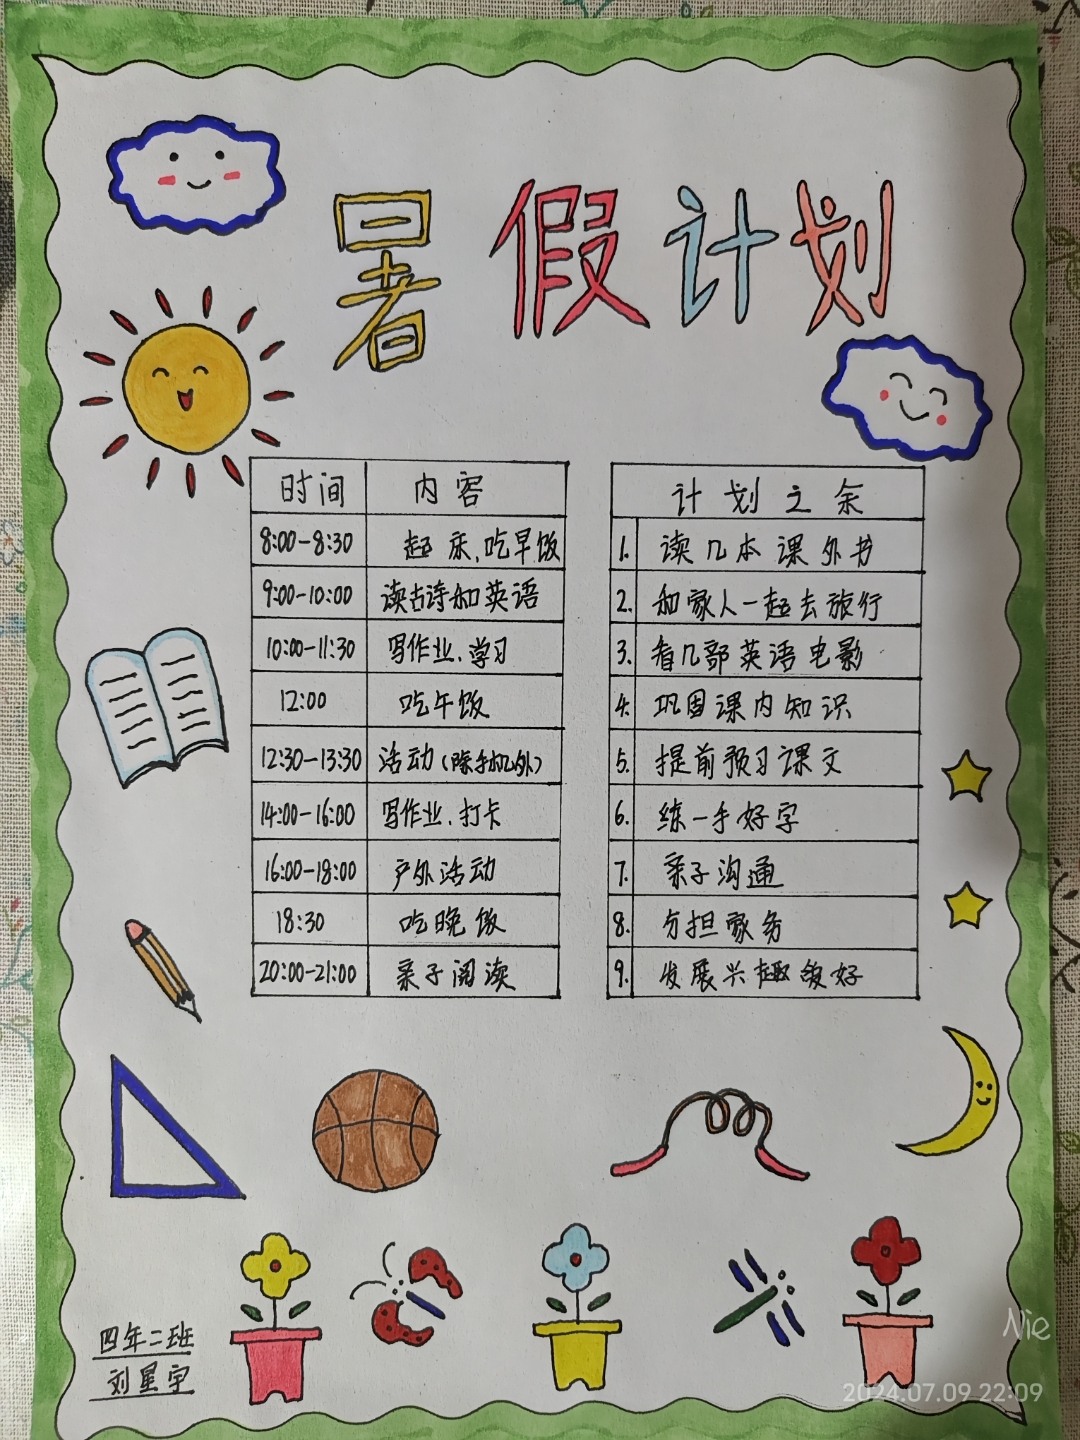 暑假计划
时间 内容
8:00-8:30 起床、吃早饭
9:00-10:00 读古诗和英语
10:00-11:30 写作业、学习
12:00 吃午饭
12:30-13:30 活动(除手机外)
14:00-16:00 写作业、打卡
16:00-18:00 户外活动
18:30 吃晚饭
20:00-21:00 亲子阅读
计划之余
1. 读几本课外书
2. 和家人一起去旅行
3. 看几部英语电影
4. 巩固课内知识
5. 提前预习课文
6. 练一手好字
7. 亲子沟通
8. 分担家务
9. 发展兴趣爱好
四年二班
刘星宇
Nie
2024.07.09 22:09